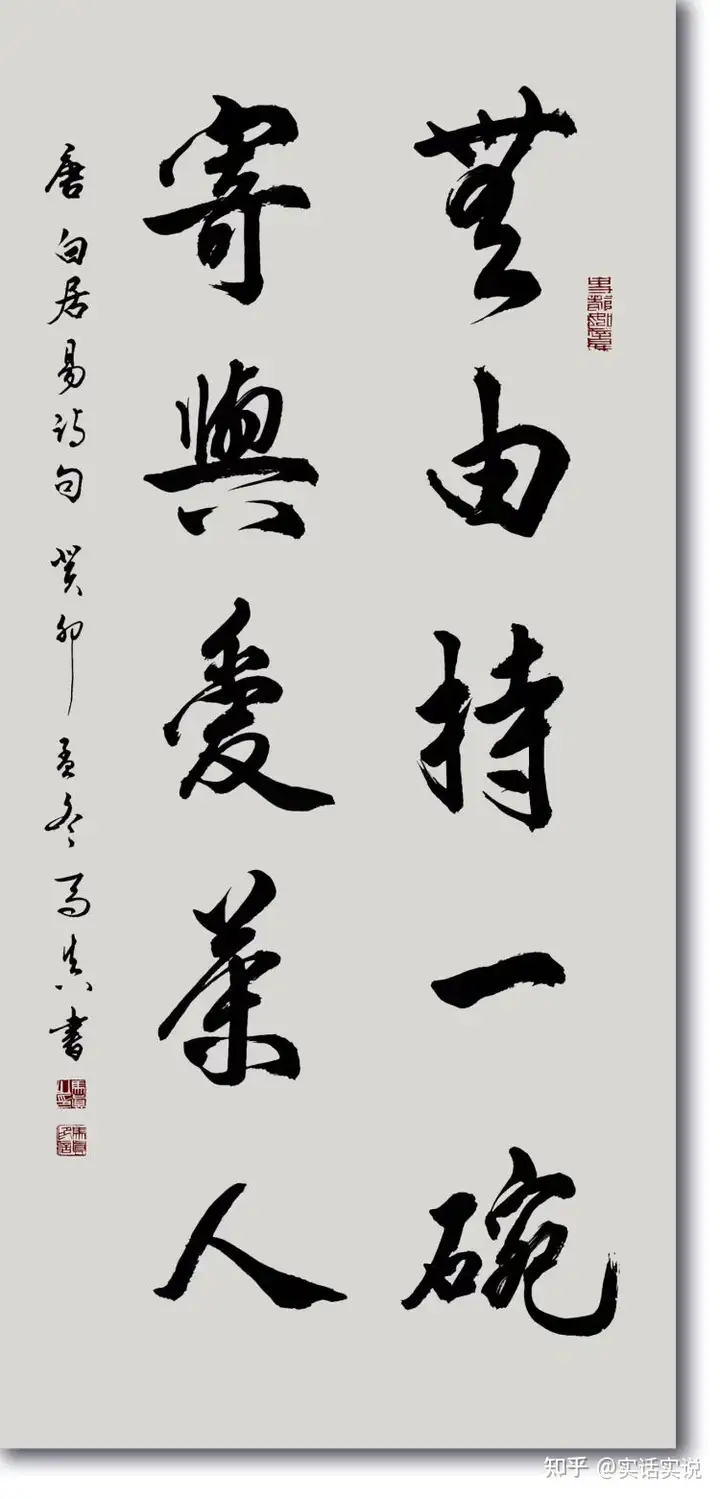 無由持一碗
寄與愛茶人
唐白居易诗句 癸卯孟冬马真書
知乎 @实话实说